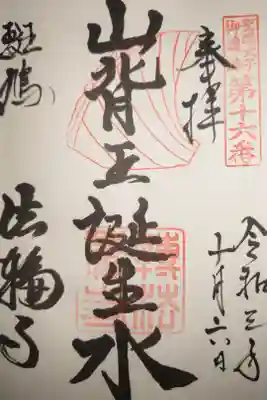 第十六番
奉拝
令和三年
十月二六日
山背王誕生水
斑鳩
法輪寺